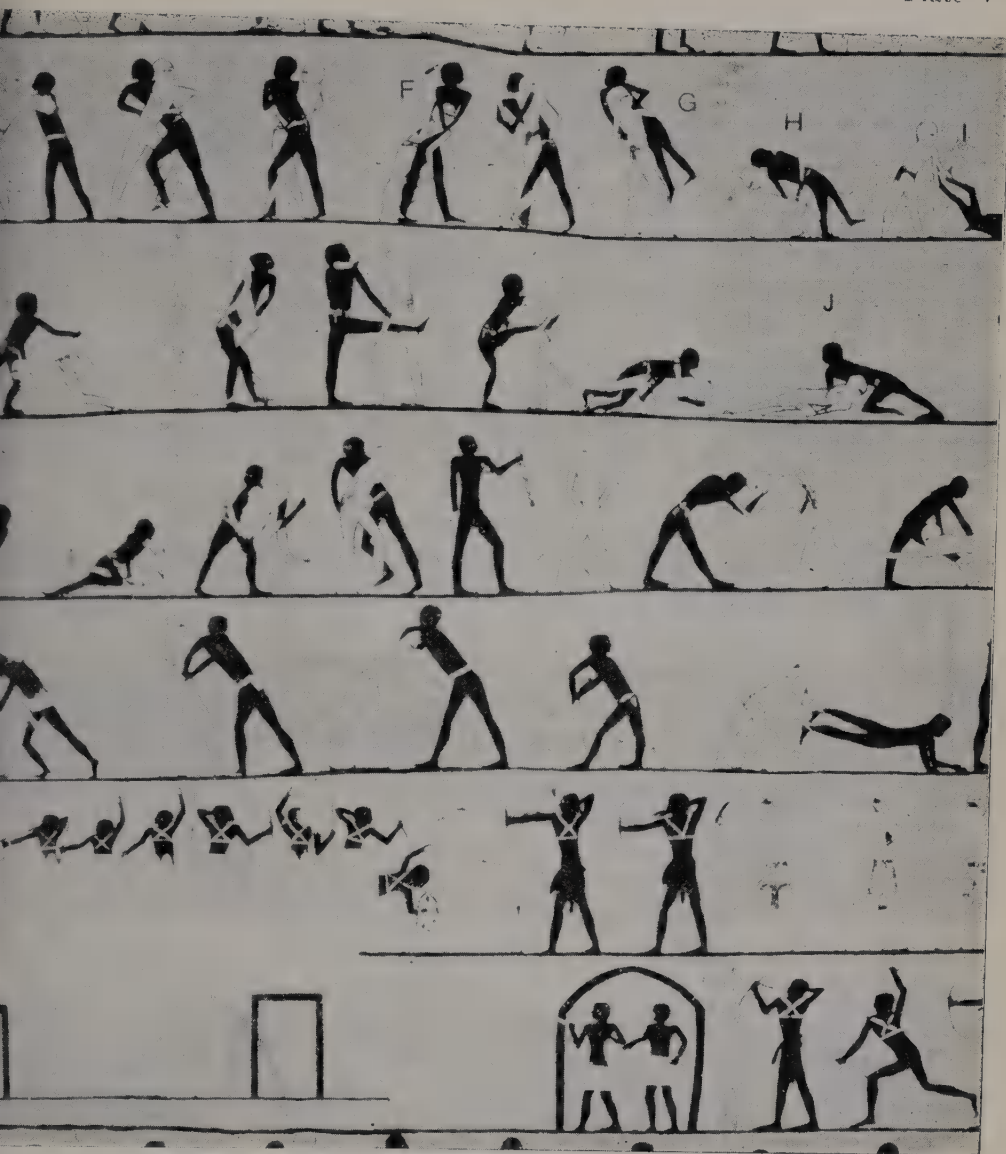 F
G
H
I
J